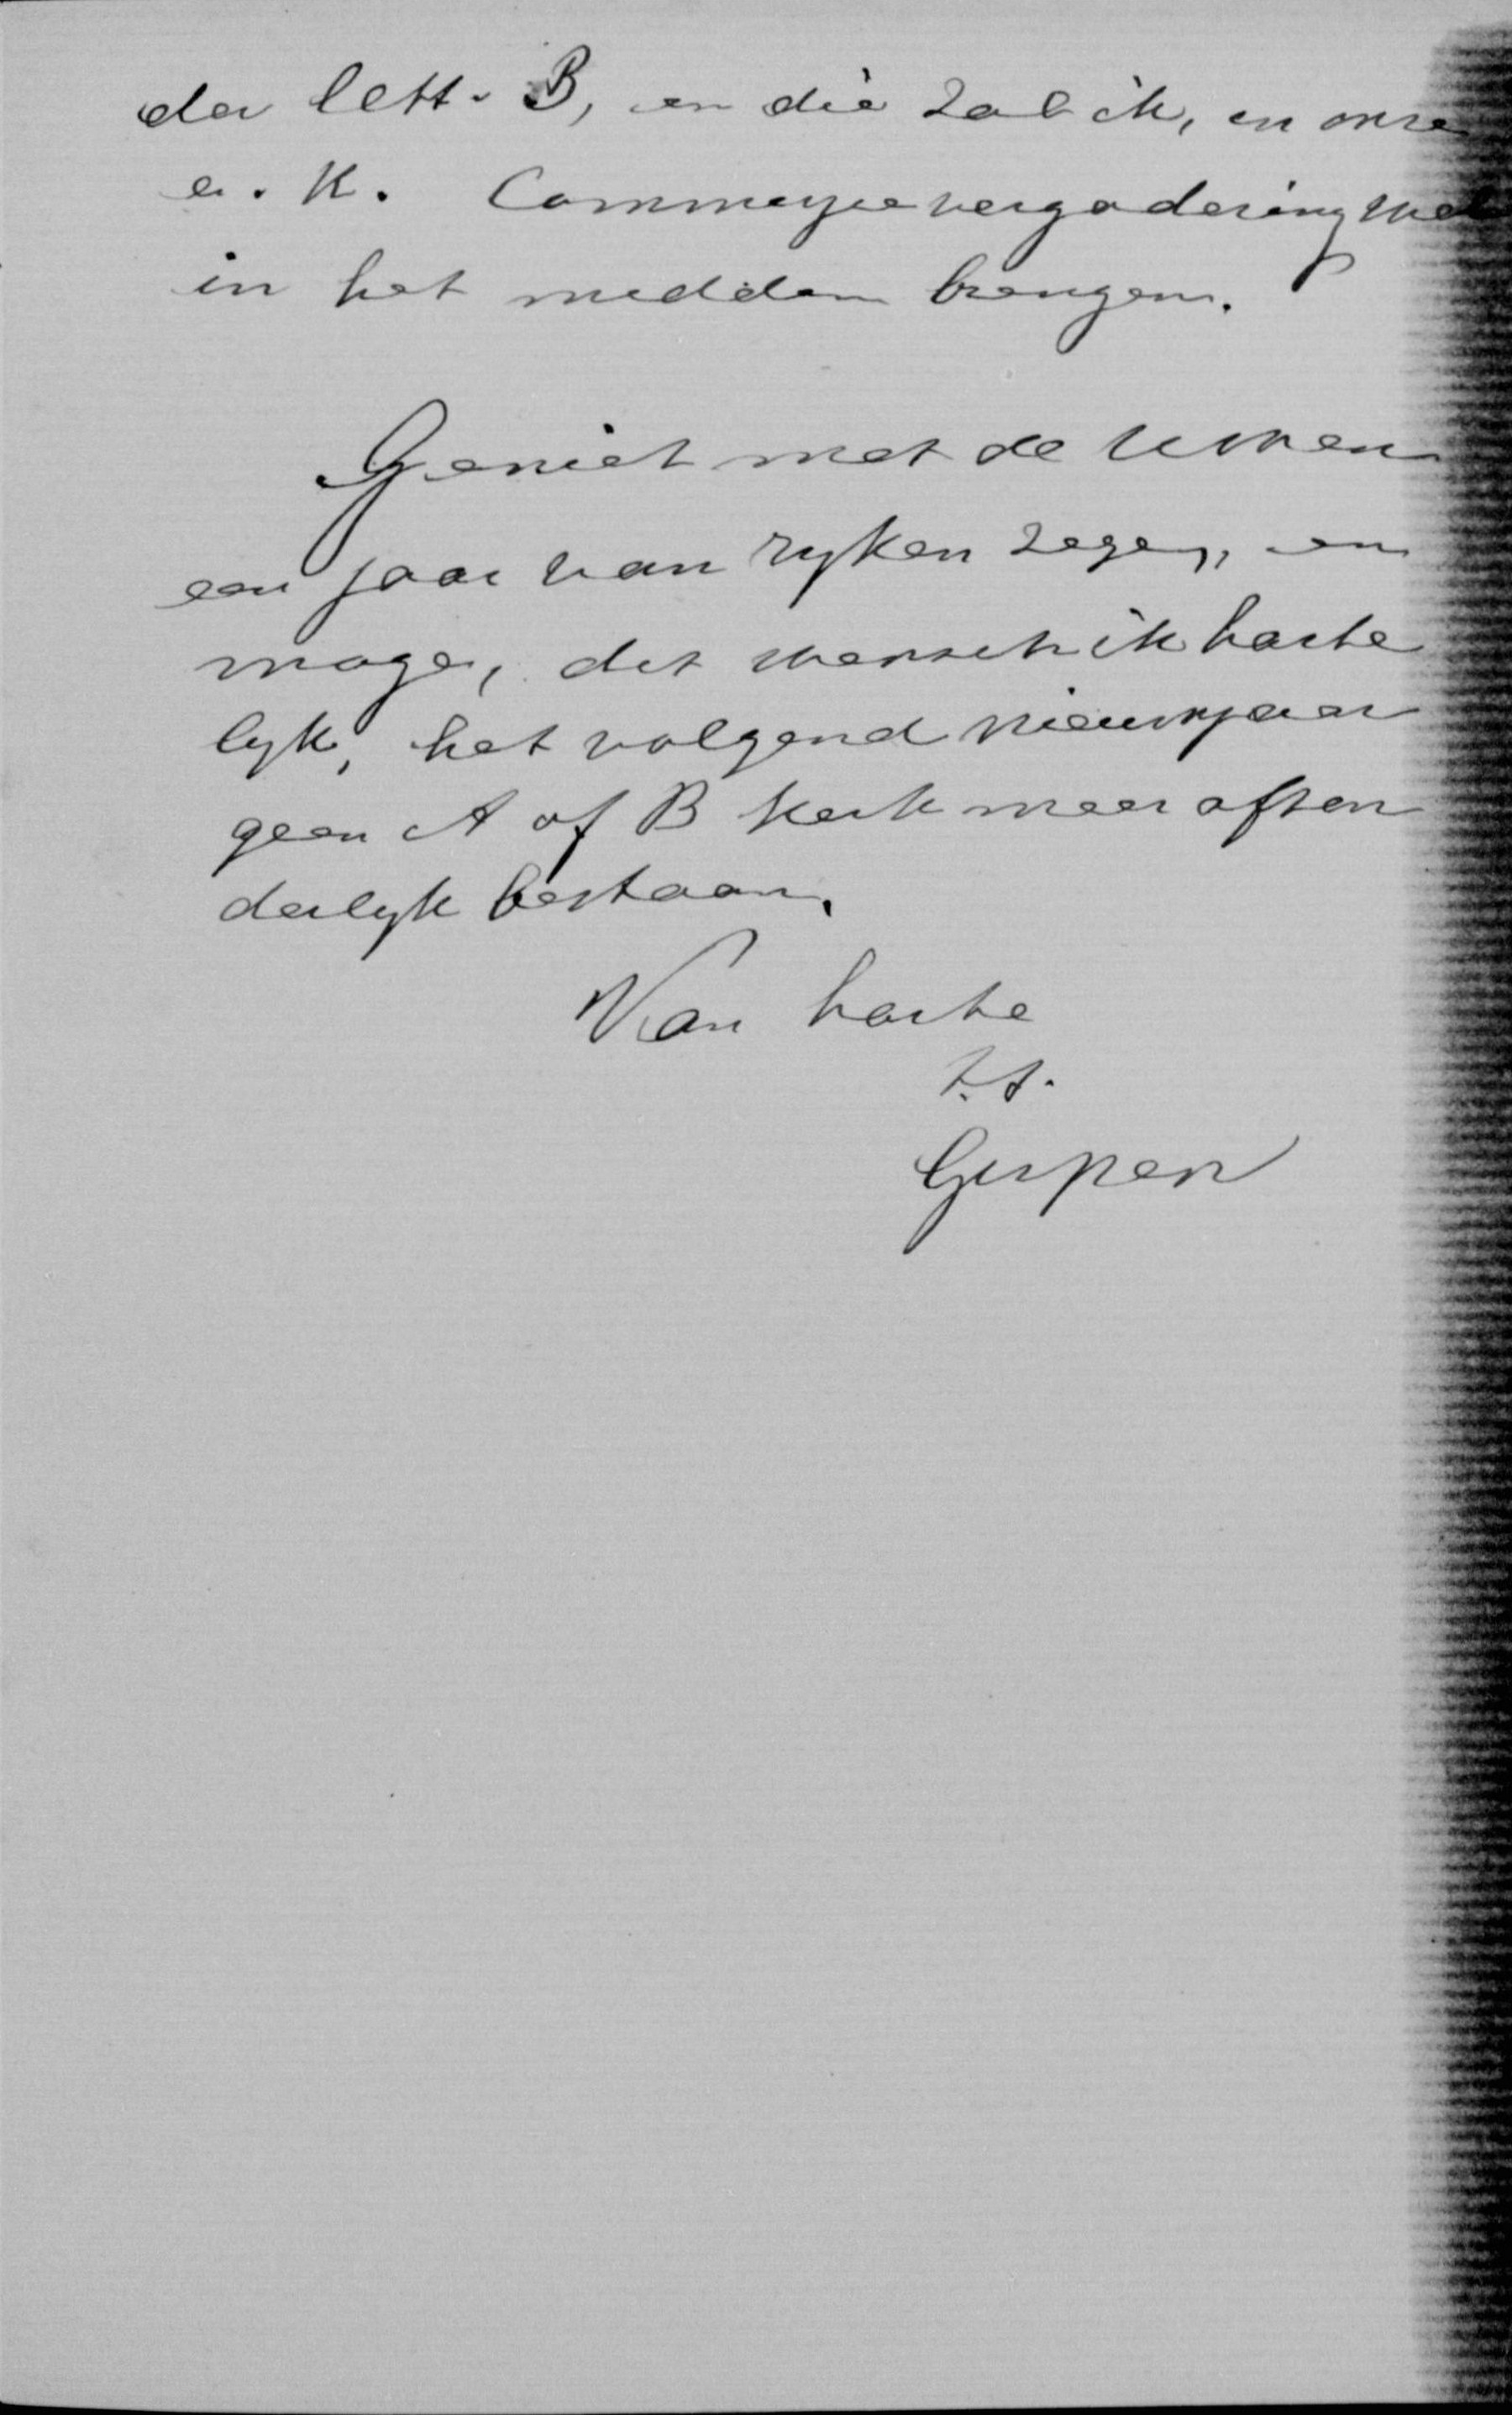 der lett. B, en die zal ik, in onze
e. k. Commissievergadering wel
in het midden brengen.
Geniet met de uwen
een jaar van ryken zegen, en
moge, dit wensch ik harte
lyk, het volgend nieuwjaar
geen A of B kerk meer afzon
derlyk bestaan.
Van harte
t.t.
Gispen